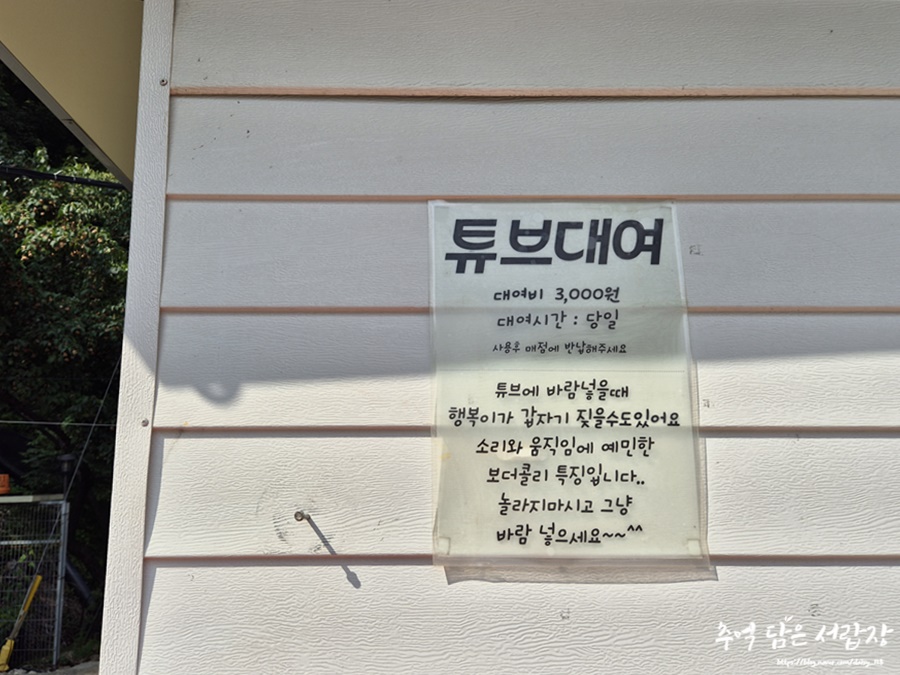 튜브대여
대여비 3,000원
대여시간 : 당일
사용후 매점에 반납해주세요
튜브에 바람넣을때
행복이가 갑자기 짖을수도있어요
소리와 움직임에 예민한
보더콜리 특징입니다..
놀라지마시고 그냥
바람 넣으세요~~^^
추억 담은 서랍장